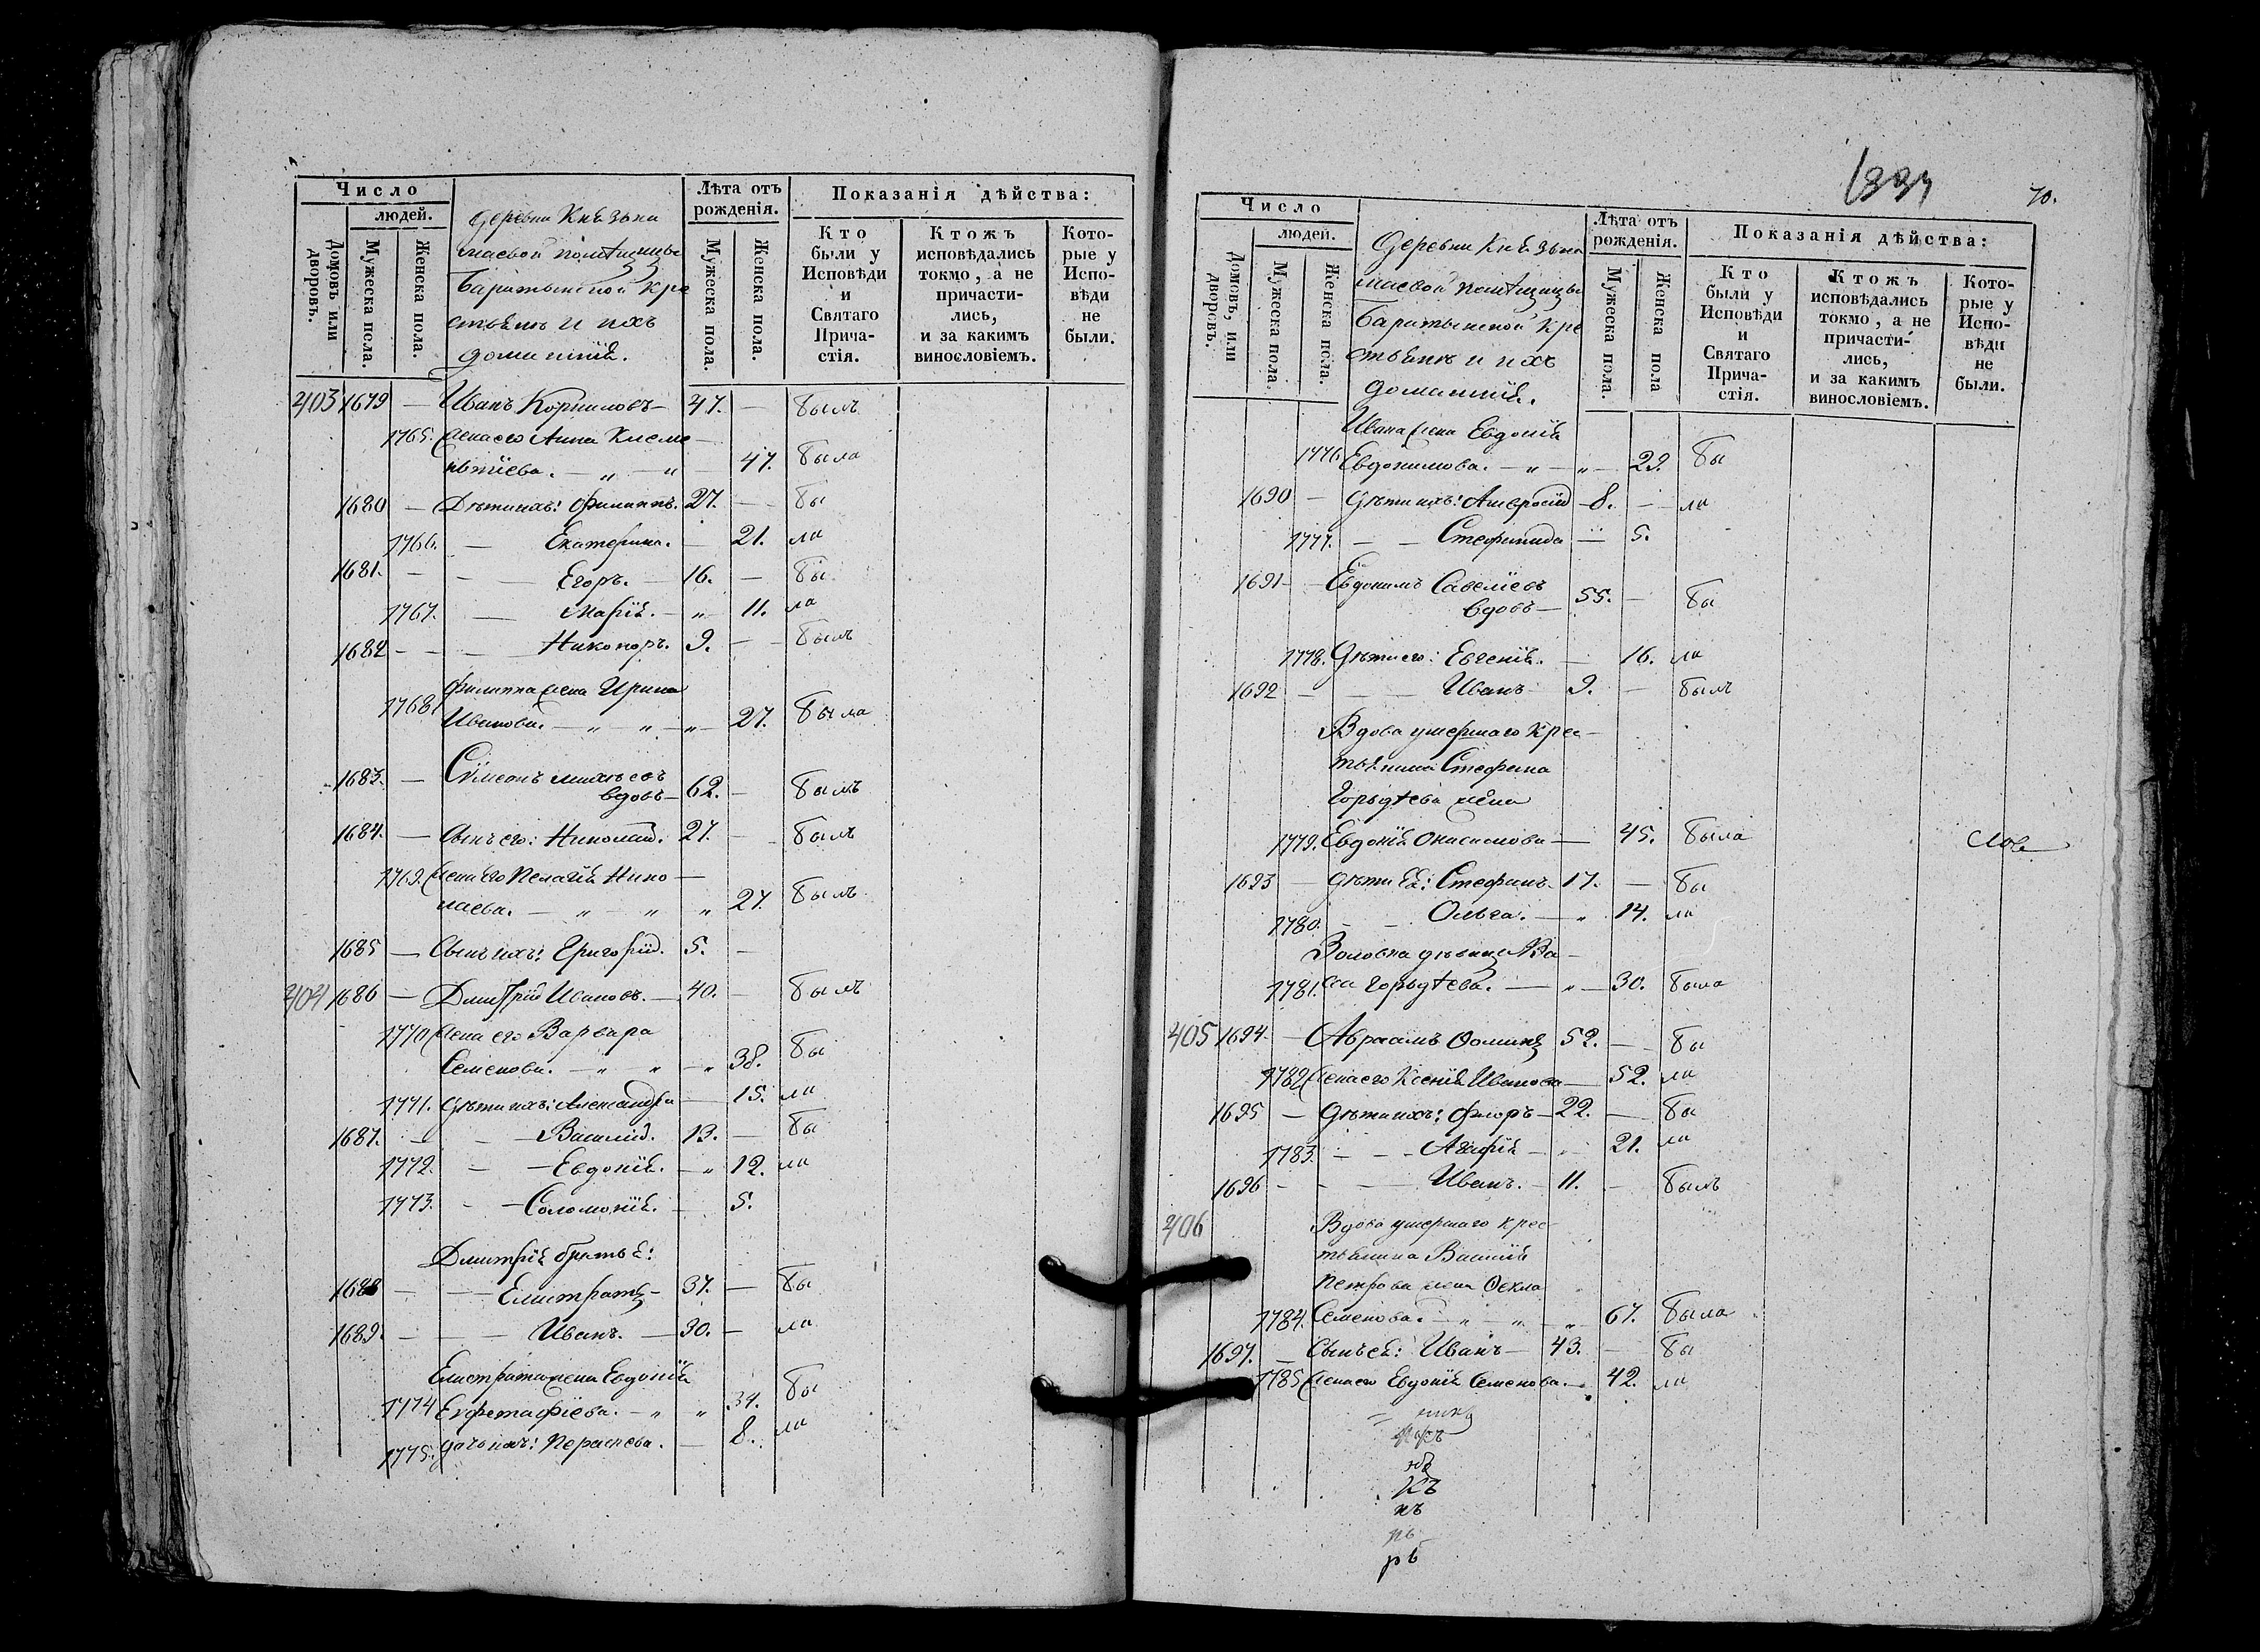 Число
людей.
Домовъ или дворовъ.
Мужеска пола.
Женска пола.
деревни Князьки
маевой помѣщицы
Баратынской кре
стьянъ и ихъ
домашнiя.
Лѣта отъ
рожденія.
Мужеска пола.
Женска пола.
Показанія дѣйства:
Кто
были у
Исповѣди
и
Святаго
Прича-
стія.
Ктожъ
исповѣдались
токмо, а не
причасти-
лись,
и за какимъ
винословіемъ.
Кото-
рые у
Испо-
вѣди
не
были.
403 1679 — Иванъ Корниловъ — 47. — былъ
1765. жена его Анна Клеме —
нтіева. — „ — „ — 47. была
1680 — Дѣти ихъ: Филиппъ. 27. — бы
1766. — Екатерина. — 21. ла
1681. — — Егоръ. — 16. — бы
1767. — Марія. — „ 11. ла
1682 — — Никоноръ. 9. — былъ
Филиппа жена Ирина
1768. Иванова. — „ — „ — „ — 27. была
1683. — Сѵмеонъ
вдовъ — 62. — былъ
1684. — Сынъ его: Николай. 27. — былъ
1769. жена его Пелагія Нико —
лаева. — „ — „ „ 27. былъ
1685 — Сынъ ихъ: Григорій. 5. —
404 1686 — Дмитрій Ивановъ. — 40. — былъ
1770 жена его Варвара
Семенова. — „ — „ — „ 38. бы
1771. Дѣти ихъ: Александра — 15. ла
1687. — — Василій. 13. — бы
1772. — — Евдокія. — „ 12. ла
1773. — — Соломонія. — 5.
Дмитрія братья:
1688 — — Елистратъ — 37. — бы
1689. — — Иванъ. — 30. — ла
Елистрата жена Евдокія
1774 — „ „ 34. бы
1775. дочь ихъ: Параскева. — 8. ла
1334
70.
Число
людей.
Домовъ, или дворовъ.
Мужеска пола.
Женска пола.
Деревни Князьки
маевой помѣщицы
Баратынской кре
стьянъ и ихъ
домашнiя.
Лѣта отъ
рожденія.
Мужеска пола.
Женска пола
Показанія дѣйства:
Кто
были у
Исповѣди
и
Святаго
Прича-
стія.
Ктожъ
исповѣдались
токмо, а не
причасти-
лись,
и за какимъ
винословіемъ.
Кото-
рые у
Испо-
вѣди
не
были.
Ивана жена Евдокія
1776. Евдокимова. — „ — „ — 29. бы
1690 — Дѣти ихъ: Амвросій — 8. — ла
1777. — — Стефанида — 5.
1691 — Евдокимъ Савеліевъ
вдовъ — 55. — бы
1778. Дѣти его: Евгенія. — 16. ла
1692 — — Иванъ — 9. — былъ
Вдова умершаго крес —
тьянина Стефана
Гордѣева жена
1779. Евдокія Онисимова — 45. была
1693 — Дѣти ея: Стефанъ. 17. — бы
1780. — — Ольга. — „ 14. ла
Золовка дѣвица Ва —
1781. са Гордѣева. — „ — 30. была
405 1694. — Авраамъ Ѳоминъ 52. — бы
1782 жена его Ксенія Иванова — 52. ла
1695 — Дѣти ихъ: Флоръ — 22. — бы
1783. — — Агафія — „ 21. ла
1696 — — Иванъ. — 11. — былъ
406 Вдова умершаго крес-
тьянина Василія
Петрова жена Ѳекла
1784. Семенова. — „ — „ — „ 67. была
1697. — Сынъ ея: Иванъ — 43. — бы
1785 жена его Евдокія Семенова. — 42. ла
къ
нъ